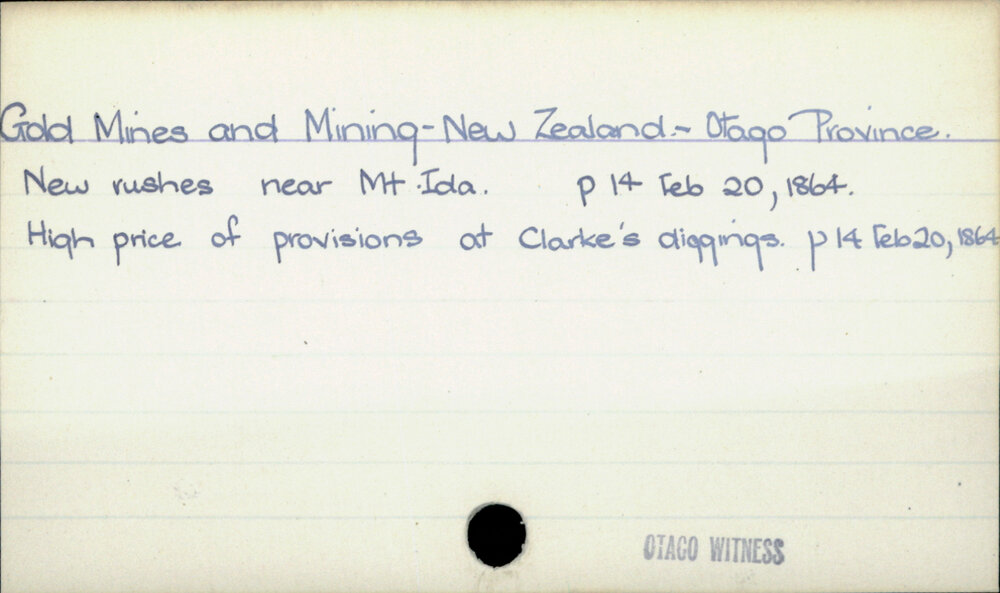 Gold Mines and Mining - New Zealand. - Otago Province.
New rushes near Mt. Ida. p 14 Feb 20, 1864.
High price of provisions at Clarke's diggings. p 14 Feb 20, 1864
OTAGO WITNESS